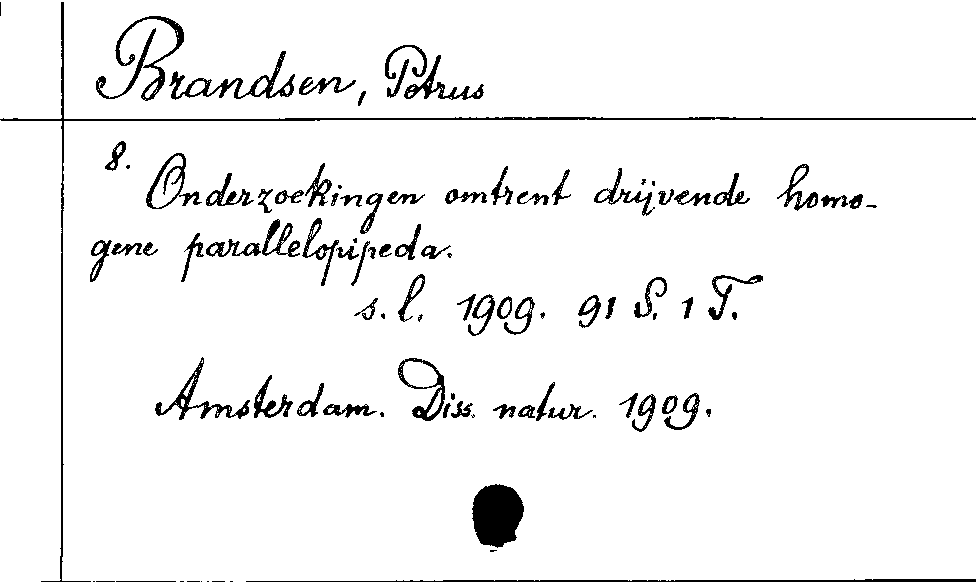 Brandsen, Petrus
8.
Onderzoekingen omtrent drijvende homo-
gene parallelopipeda.
s.l. 1909. 91 S. 1 T.
Amsterdam. Diss. natur. 1909.